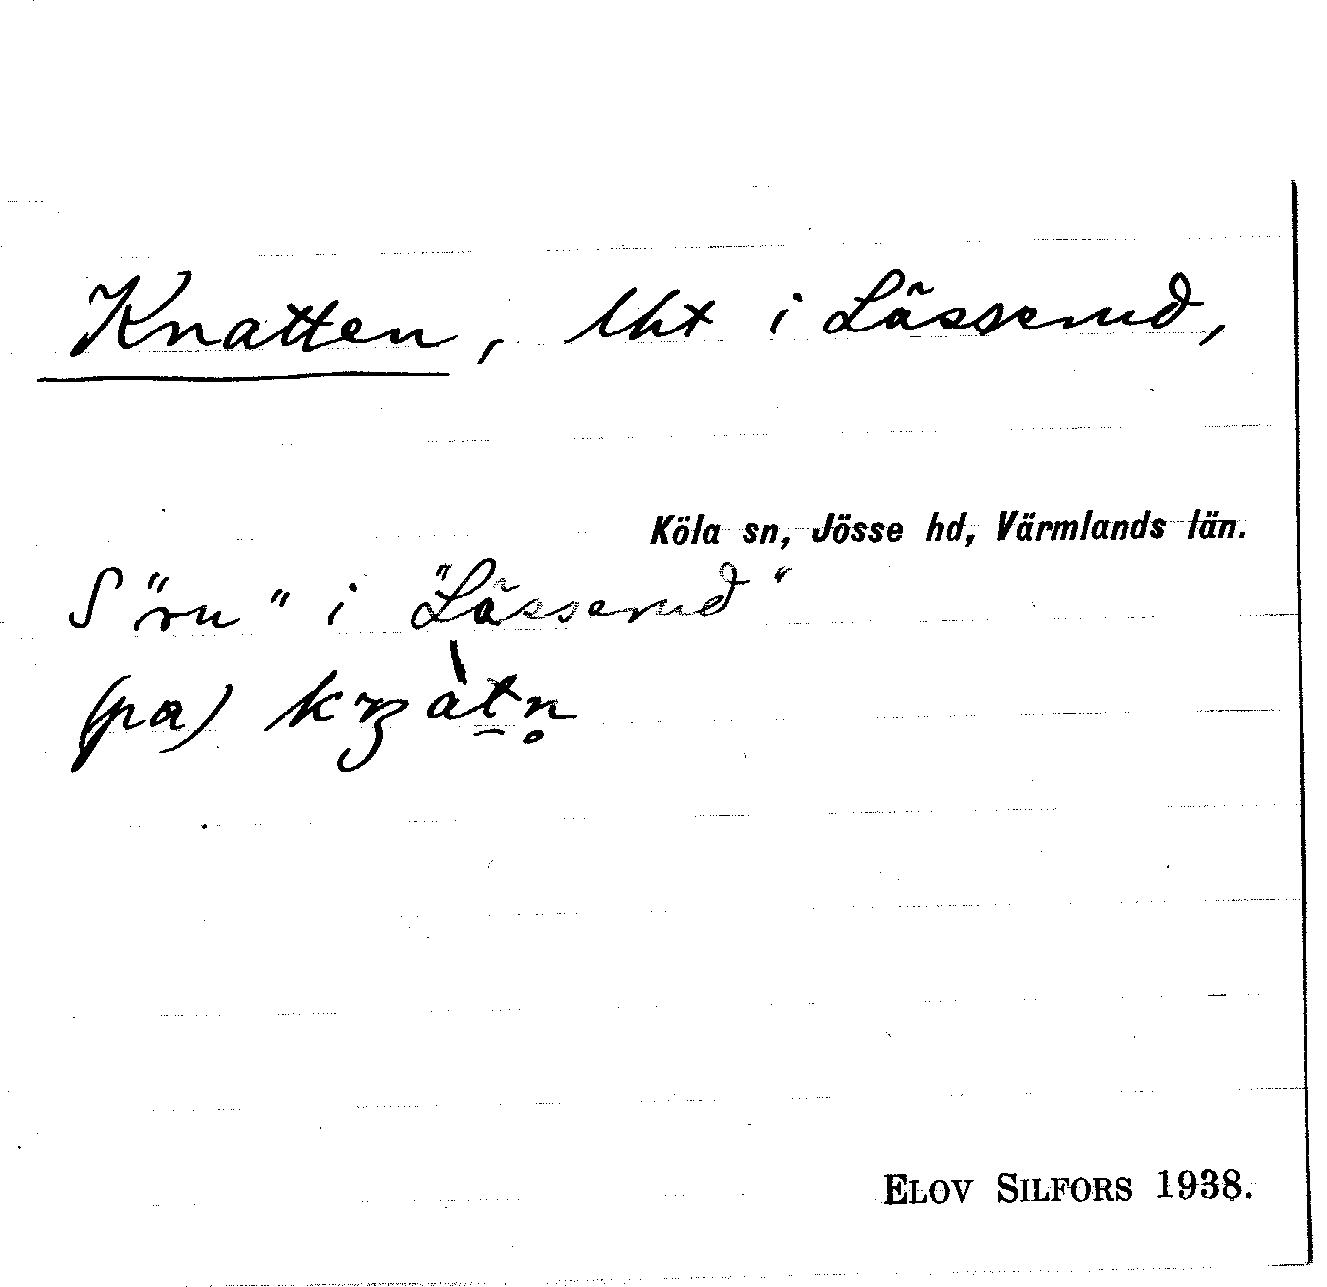 Knatten, lht i Lässerud,
Köla sn, Jösse hd, Värmlands län.
S "ru" i "Lässerud"
(pa) kʒàtn̥
ELOV SILFORS 1938.